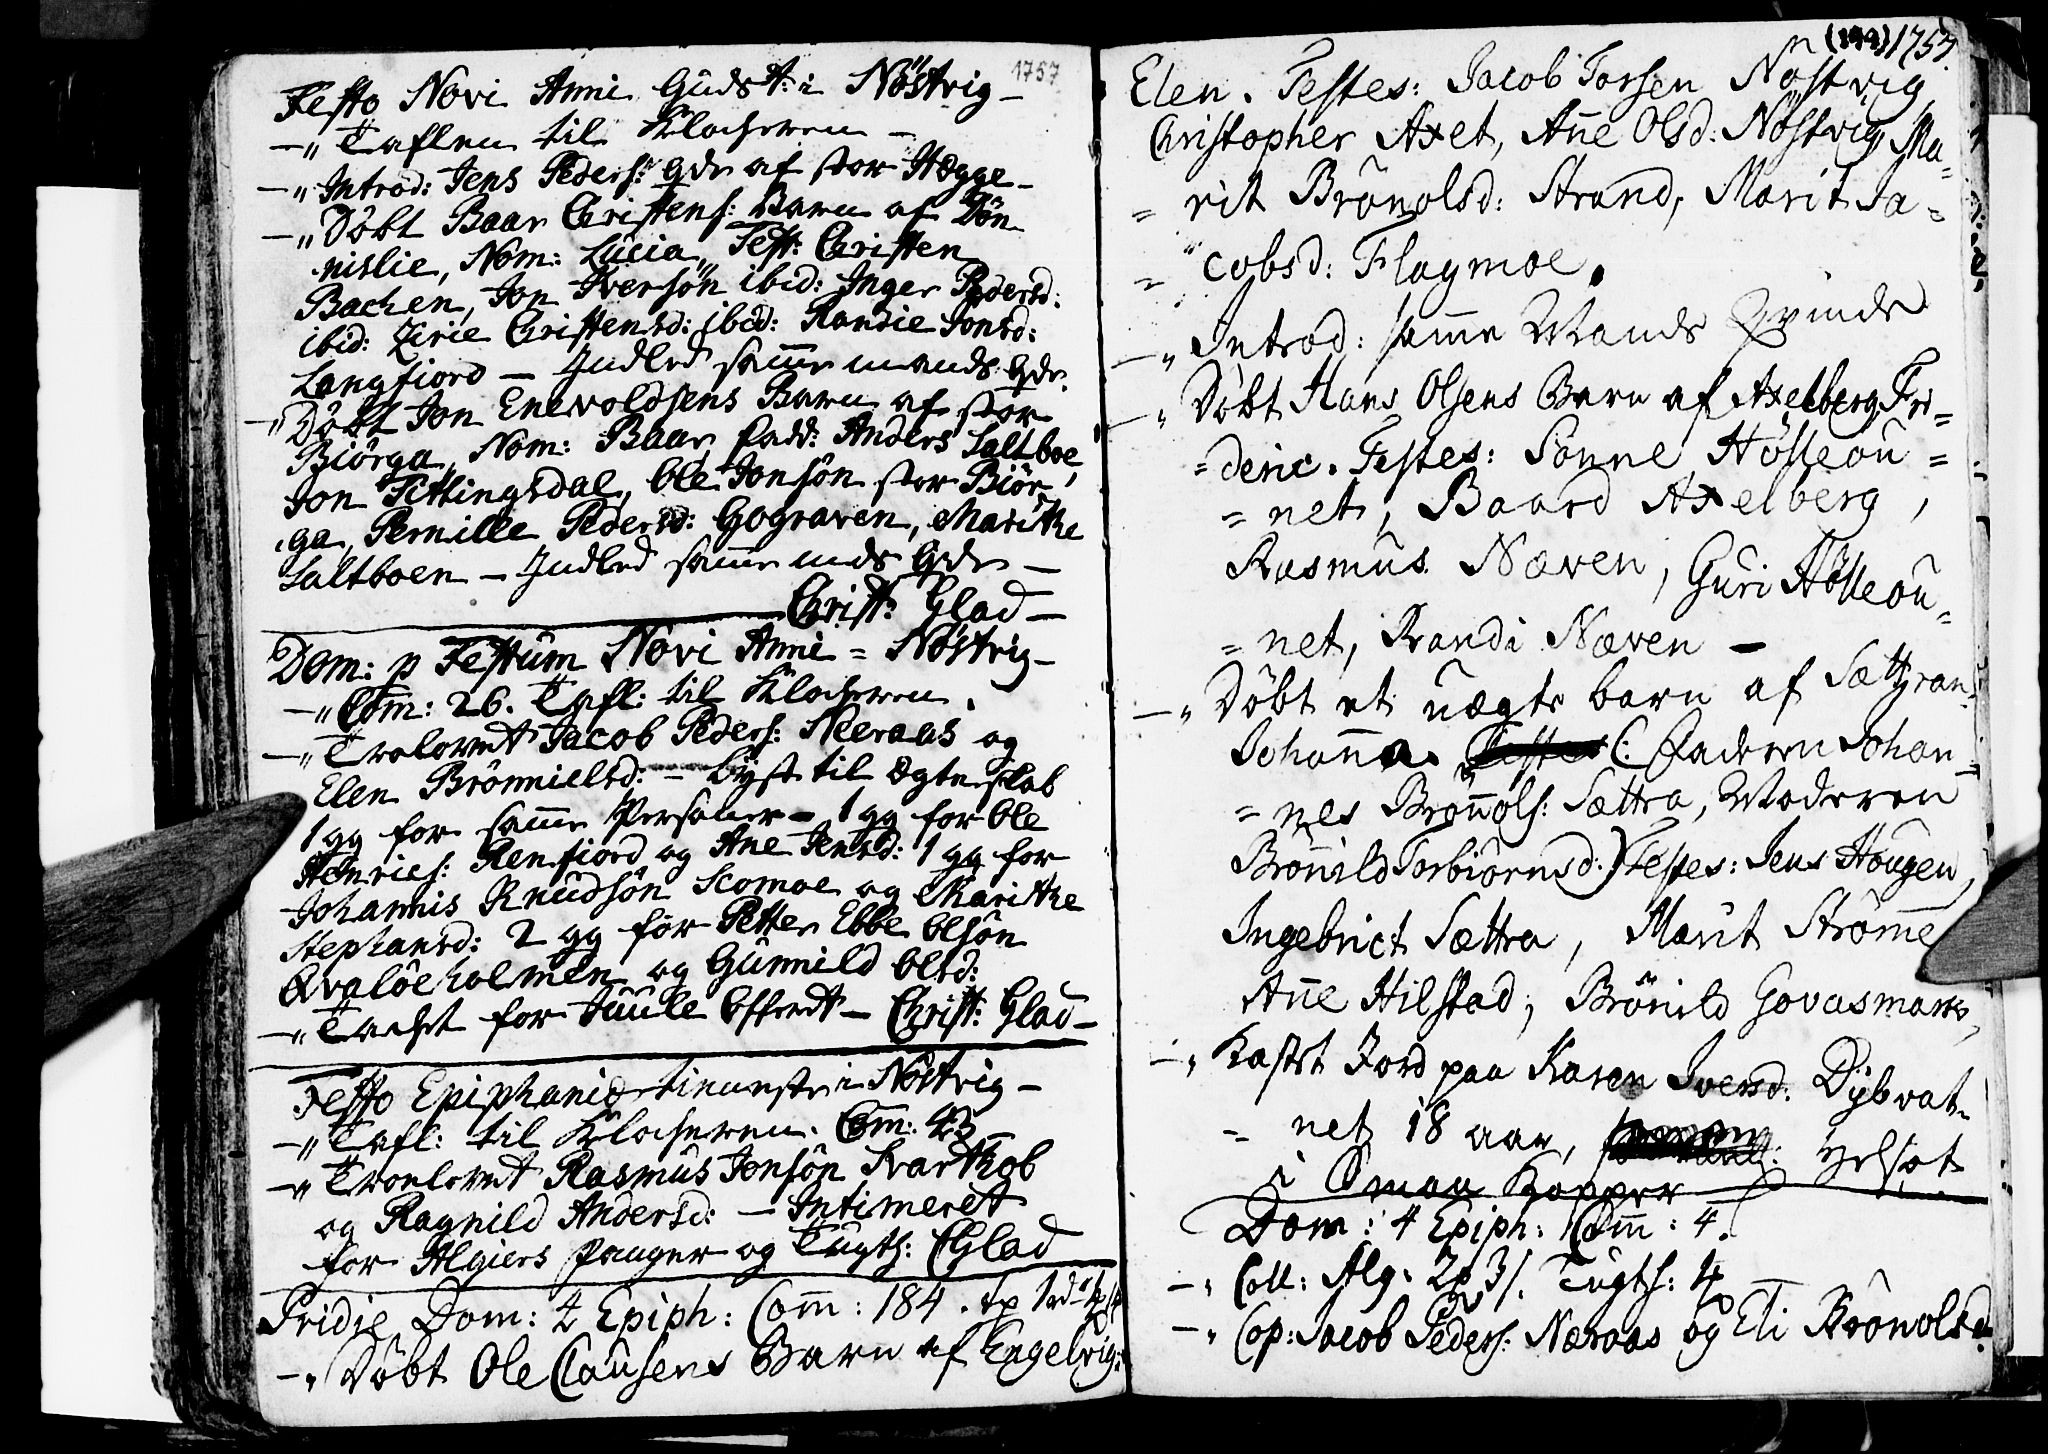 1757
Festo Novi Anni Gudst: i Nöstvig –
–„ Taflen til Klocheren –
–„ Introd: Jens Peders: qde af stor Hegge –
–„ Döbt Baar Christens: Barn af Dön
nislie, Nom: Lucia, Test: Christen
Bachen, Jon Iversön ibid: Inger Pedersd:
ibid: Zirie Christensd: ibid: Randie Jonsd:
Langfiord – Indled samme mands qde.
–„ Döbt Jon Enevoldsens Barn af stor
Biörga, Nom: Baar, Fadd: Anders Saltboe,
Jon Fittingsdal, Ole Jonsön stor Biör
ga, Pernille Pedersd: Gograven, Marithe
Saltboen – Indled samme mds qde –
Christ: Glad –
Dom: p Festum Novi Anni = Nöstvig –
–„ Com: 26. Tafl: til Klocheren.
–„ Trolovet Jacob Peders: Neeraas og
Elen Brönnielsd: – Lyst til Ægteskab
1 gg for samme Persohner – 1 gg for Ole
Henrics: Renfiord og Ane Jensd: 1 gg for
Johannis Knudsön Scomoe og Marithe
Stephansd: 2 gg for Petter Ebbe Olsön
Qvalöeholmen og Gunnild Olsd:
–„ Tachet for Juule Offeret – Christ: Glad –
Festo Epiphaniæ tieneste i Nöstvig –
–„ Tafl: til Klocheren. Com: 43 –
–„ Troelovet Rasmus Jonsön Svarthob
og Ragnild Andersd: – Intimeret
for Algiers Fanger og Tugts: CGlad
Pridie Dom: 4 Epiph: Comm: 184.
–„ Döbt Ole Clausens Barn af Engelvig:
(144) 1757.
Elen. Testes: Jacob Torsen Nöstvig
Christopher Axet, Anne Olsd: Nöstvig, Ma=
= rit Brönolsd: Strand, Marit Ja=
= cobsd: Flagmoe.
–„ Introd: samme Mands Qvinde
–„ Döbt Hans Olsens Barn af Axelberg Fri=
= deric. Testes: Sonne Hölleou =
= net, Baard Axelberg,
Rasmus Næven, Guri Hölleou=
= net, Randi Næven –
–„ Döbt et uægte barn af Sættran
Johanna. (: Faderen Johan=
= nes Brönnols: Sættra, Moderen
Brönild Torbiörnsd:) Testes: Jens Hougen,
Ingebrict Sættra, Marit Strömme
Anne Hilstad, Brönild Govasmark,
–„ Kastet Jord paa Karen Iversd: Dybvat=
= net 18 aar,
i Smaa Kopper
Dom: 4 Epiph: Comm: 4.
–„ Coll: Alg: 2p 3/. Tugts: 4
–„ Cop: Jacob Peders: Næraas og Eli Brönolsd.